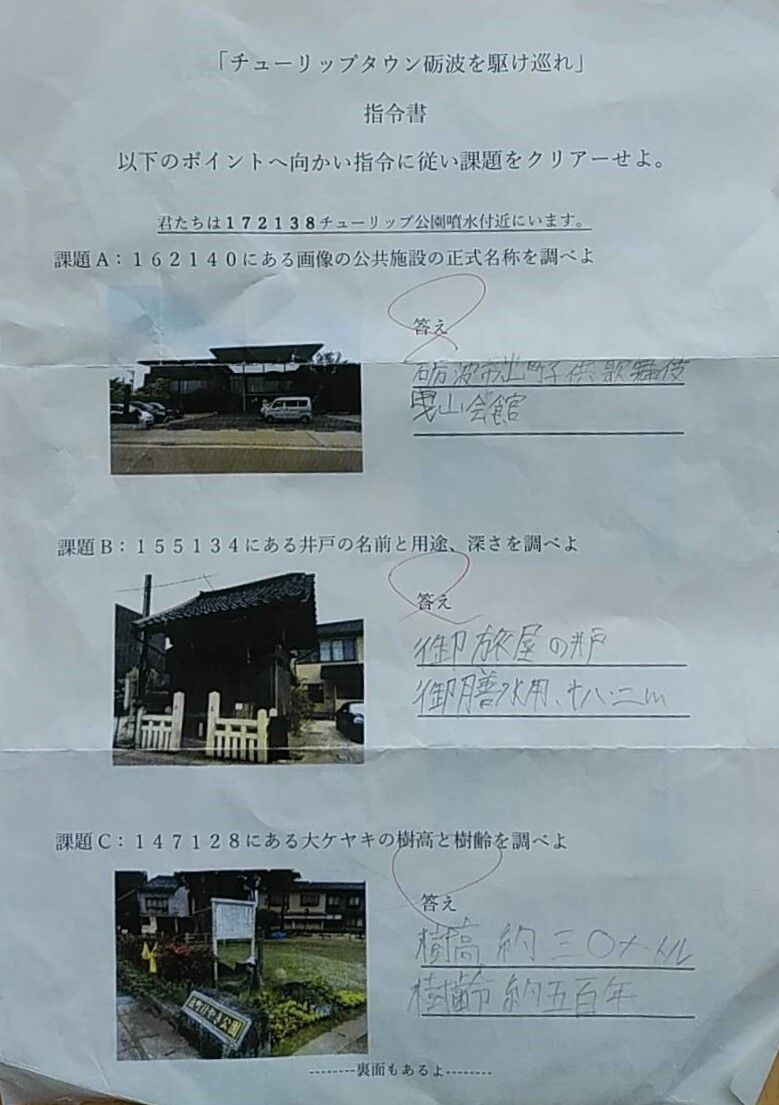 「チューリップタウン砺波を駆け巡れ」
指令書
以下のポイントへ向かい指令に従い課題をクリアーせよ。
君たちは172138チューリップ公園噴水付近にいます。
課題A:162140にある画像の公共施設の正式名称を調べよ
答え
砺波市出町子供歌舞伎
曳山会館
課題B:155134にある井戸の名前と用途、深さを調べよ
答え
御旅屋の井戸
御膳水用、十八.二m
課題C:147128にある大ケヤキの樹高と樹齢を調べよ
答え
樹高 約三〇メートル
樹齢 約五百年
--------裏面もあるよ--------